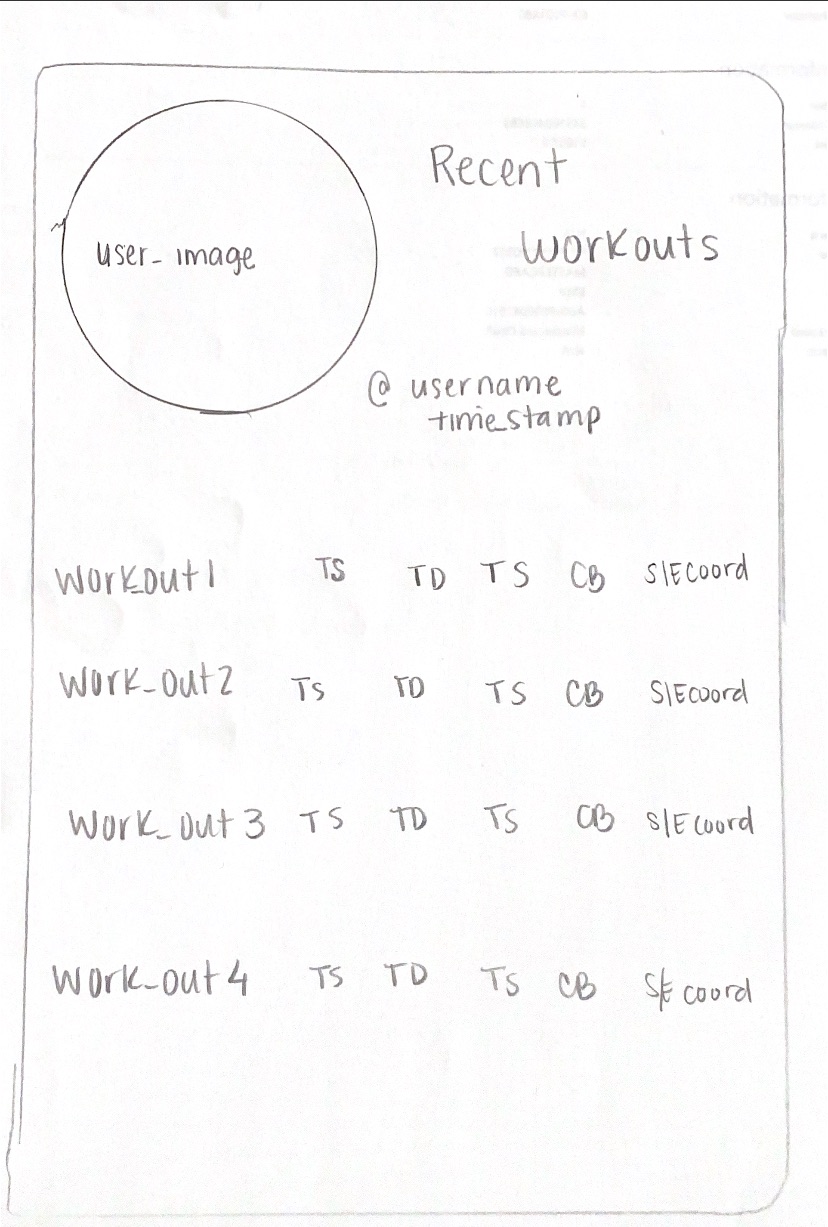 Recent
workouts
user_image
@username
time_stamp
Work_out1 TS TD TS CB S/E coord
Work_out2 Ts TD TS CB S/E coord
Work_out 3 TS TD TS CB S/E coord
Work_out 4 TS TD TS CB S/E coord